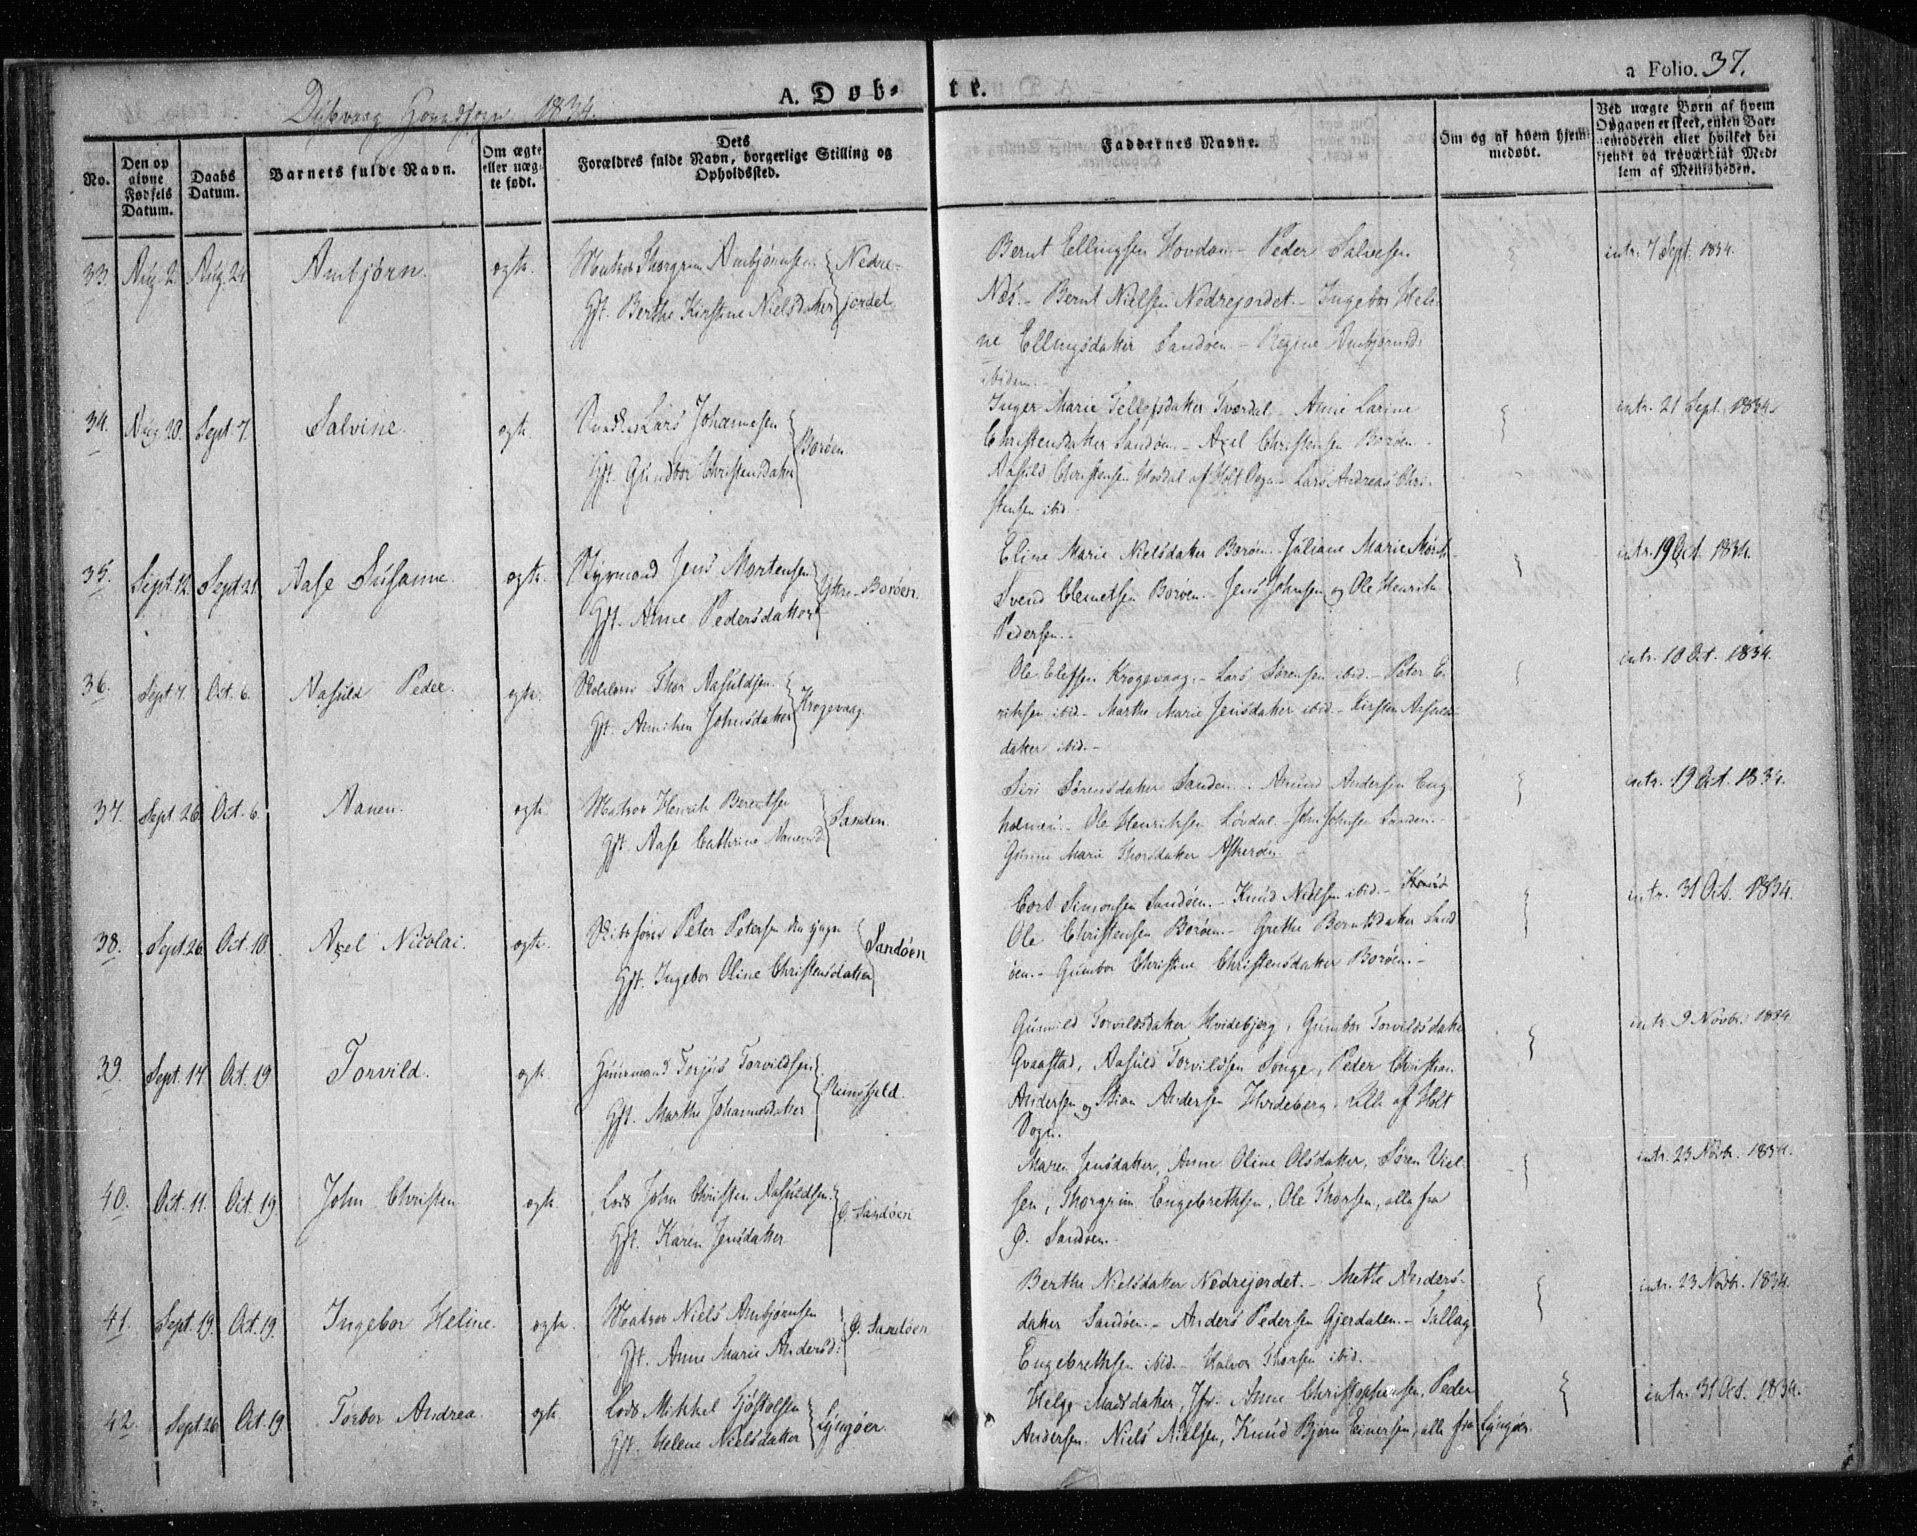 Dybvaag Hovedsogn 1834.
A. Døb-
te.
a Folio. 37.
No.
Den op givne Fødsels Datum.
Daabs Datum.
Barnets fulde Navn.
Om ægte eller uægte født.
Dets Forældres fulde Navn, borgerlige Stilling og Opholdssted.
Faddernes Navne.
Om og af hvem hjemmedøbt.
33. Aug. 2. Aug. 24 Ambjørn. ægte.
Matros Thorgrim Ambjørnsen
Gft. Berthe Kirstine Nielsdatter
Nedre-
jordet
Bernt Ellingsen Hovdan - Peder Salvesen
Næs. - Bernt Nielsen Nedrejordet. - Ingebor Heli-
ne Ellingsdatter Sandøen - Regine Ambjørnsd:
ibidem. -
intr. 7 Sept. 1834.
34. Aug. 20. Sept. 7. Salvine. ægte
Lars Johannesen
Gft. Gundbor Christensdatter
Borøen
Inger Marie Tellefsdatter Tverdal. - Anne Larine
Christensdatter Sandøen. - Axel Christensen Borøen -
Aasuld Christensen Hosdal af Holt Sogn - Lars Andreas Chri-
stensen ibid.
intr. 21 Sept. 1834.
35. Sept. 12. Sept. 21. Aase Susanne. ægte.
Styrmand Jens Mortensen
Gft. Anne Pedersdatter
Ytre-Borøen.
Eline Marie Nielsdatter Borøn. Juliane Marie
Svend Clemetsen Borøen. Jens Johnsen og Ole Henrik
Pedersen. -
intr. 19 Oct. 1834.
36. Sept. 7. Oct. 6. Aasuld Peder. ægte.
Thor Aasuldsen
Gft. Anniken Johnsdatter
Krogevaag.
Ole Olefsen Krogevaag. - Lars Sørensen ibid. - Peter E-
riksen ibid - Marthe Marie Jensdatter ibid - Kirsten
datter ibid. -
intr. 10 Oct. 1834.
37. Sept. 26. Oct. 6. Aanen. ægte.
Matros Henrik Berentsen
Gft. Aase Cathrine Aanensd
Sanden.
Siri Sørensdatter Sanden. Amund Andersen Eng
holmen - Ole Henriksen Løvdal - John Johnsen Sanden -
Gunne Marie Thorsdatter Askerøen -
intr. 19 Oct. 1834.
38. Sept. 26. Oct. 10. Axel Nicolai. ægte.
Peter Petersen den yngre
Gft. Ingebor Oline Christensdatter
Sandøen
Cort Simonsen Sandøen. - Knud Nielsen ibid. -
Ole Christensen Borøen - Grethe Berntsdatter Sand
øen. - Gumbor Christine Christensdatter Borøen. -
intr. 31 Oct. 1834.
39. Sept. 14. Oct. 19 Torvild. ægte.
Huusmand Terjus Torvildsen
Gft. Marthe Johannesdatter
Reinsfjeld.
Gunnild Torvildsdatter Hvidebjerg, Gumbor Torvildsdatter
Gvaastad, Aasuld Torvildsen Songe, Peder Christian
Andersen og Stian Andersen Hvideberg, alle af Holt
Sogn.
intr. 9 Novbr. 1834
40. Oct. 11. Oct. 19 John Christen ægte.
Lods John Christen Aasuldsen
Gft. Karen Jensdatter
Ø. Sandøen
Maren Jensdatter, Anne Oline Olsdatter, Søren Niel
sen, Thorgrim Engebrethsen, Ole Thorsen, alle fra
Ø. Sandøen.
intr. 23 Novbr. 1834.
41. Sept. 19. Oct. 19. Ingebor Heline. ægte.
Matros Niels Ambjørnsen
Gft. Anne Marie Andersd:
Ø. Sandøen
Berthe Nielsdatter Nedrejordet. - Methe Anders-
datter Sandøen. - Anders Pedersen Gjerdalen. - Tallag
Engebrethsen ibid. - Halvor Thorsen ibid.
intr. 23 Novbr. 1834.
42. Sept. 26 Oct. 19. Torbor Andrea. ægte
Lods Mikkel Gjøstolsen
Gft. Helene Nielsdatter
Lyngøer.
Helge Madsdatter, Jfr. Anne Christophersen, Peder
Andersen. Niels Nielsen, Knud Bjørn Einersen, alle fra Lyngøer.
intr. 31 Oct. 1834.